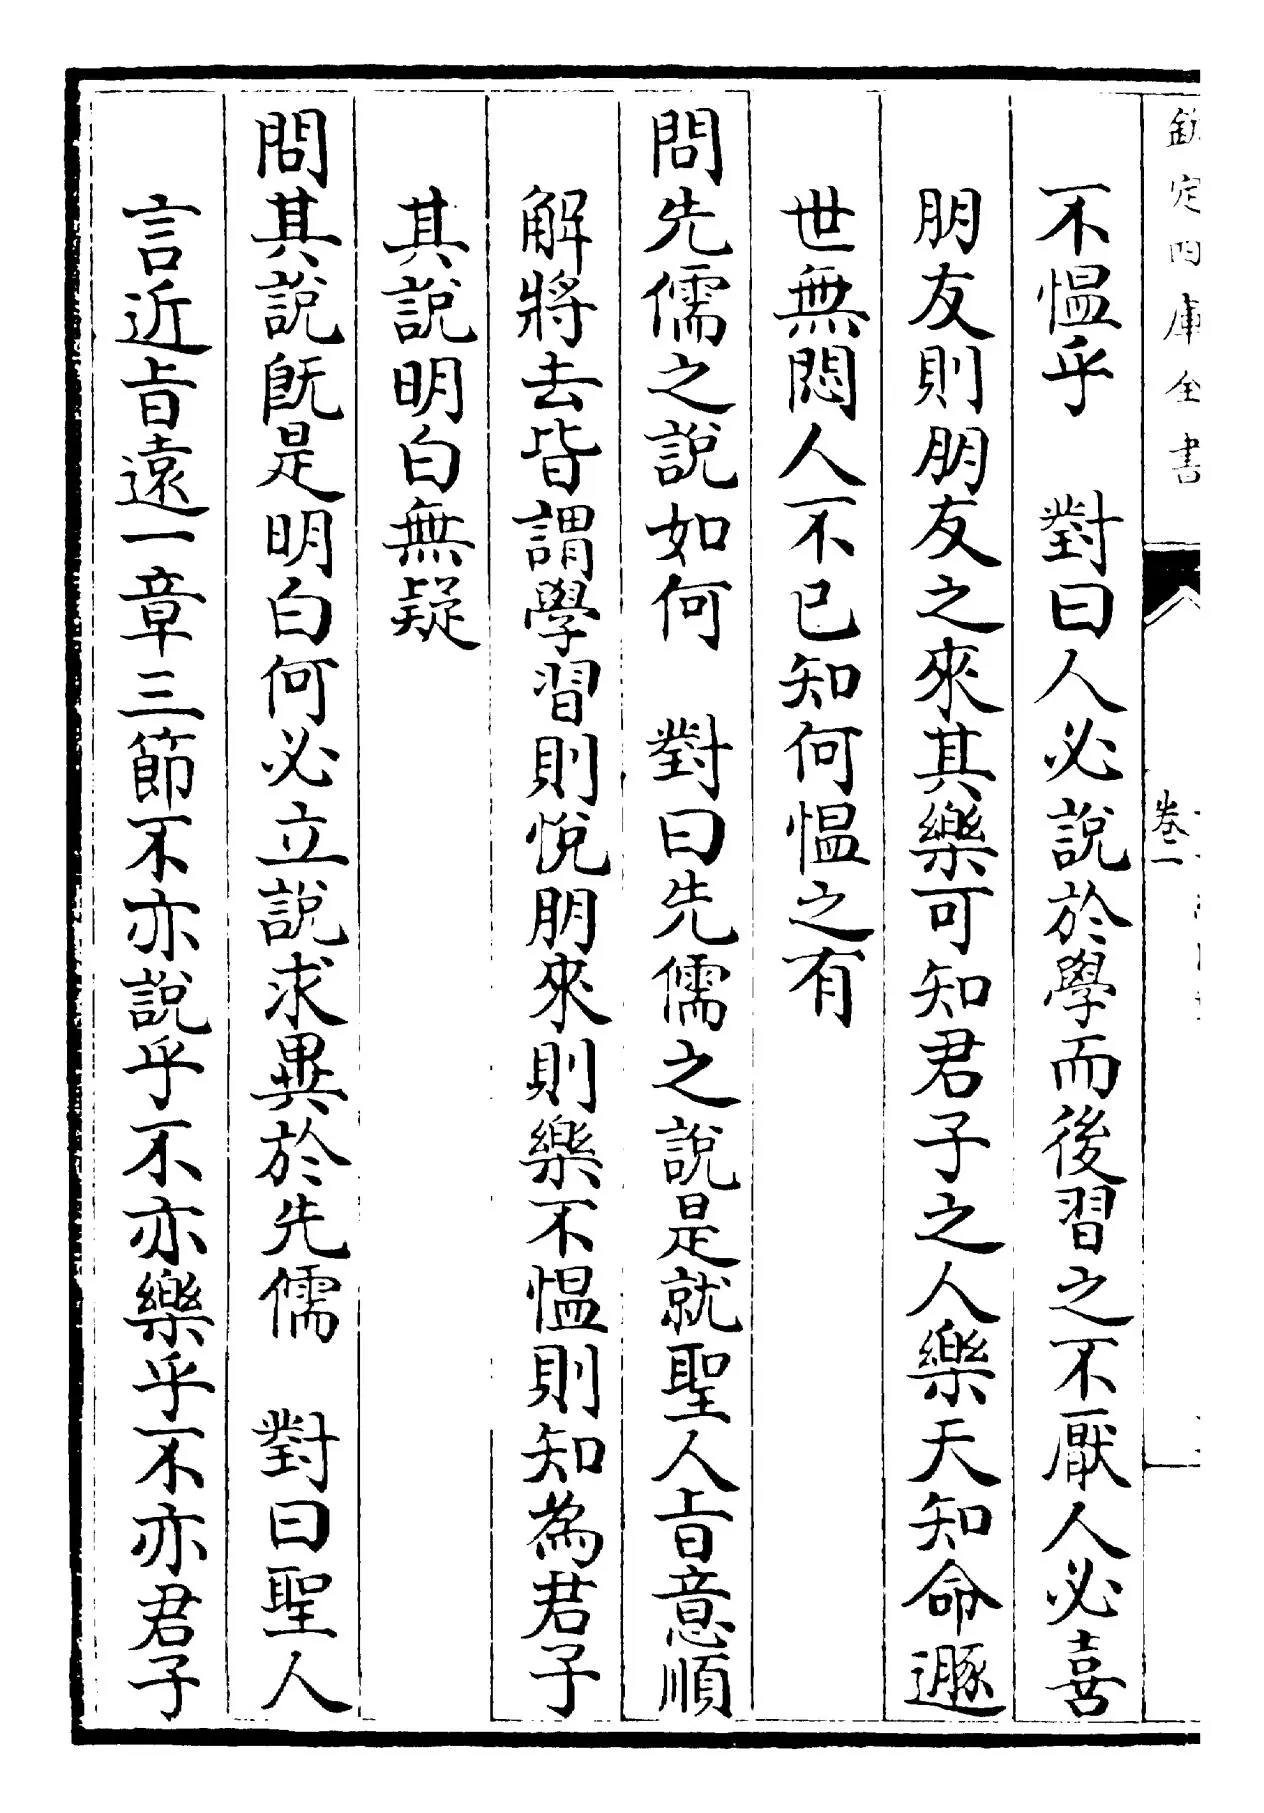 欽定四庫全書
卷二
不愠乎　對曰人必說於學而後習之不厭人必喜
朋友則朋友之來其樂可知君子之人樂天知命遯
世無悶人不已知何愠之有
問先儒之說如何　對曰先儒之說是就聖人㫖意順
解將去皆謂學習則悅朋來則樂不愠則知為君子
其說明白無疑
問其說旣是明白何必立說求異於先儒　對曰聖人
言近㫖遠一章三節不亦說乎不亦樂乎不亦君子